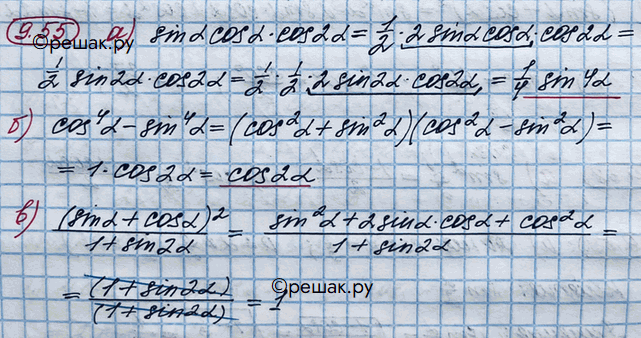 9.55 а) sinα cosα · cos2α = 1/2 · 2 sinα cosα · cos2α =
©решак.ру
1/2 sin2α · cos2α = 1/2 · 1/2 · 2 sin2α · cos2α = 1/4 sin4α
б) cos⁴α - sin⁴α = (cos²α + sin²α)(cos²α - sin²α) =
= 1 · cos2α = cos2α
в) (sinα + cosα)² / 1 + sin2α = sin²α + 2sinα · cosα + cos²α / 1 + sin2α =
= (1 + sin2α) / (1 + sin2α) = 1
©решак.ру